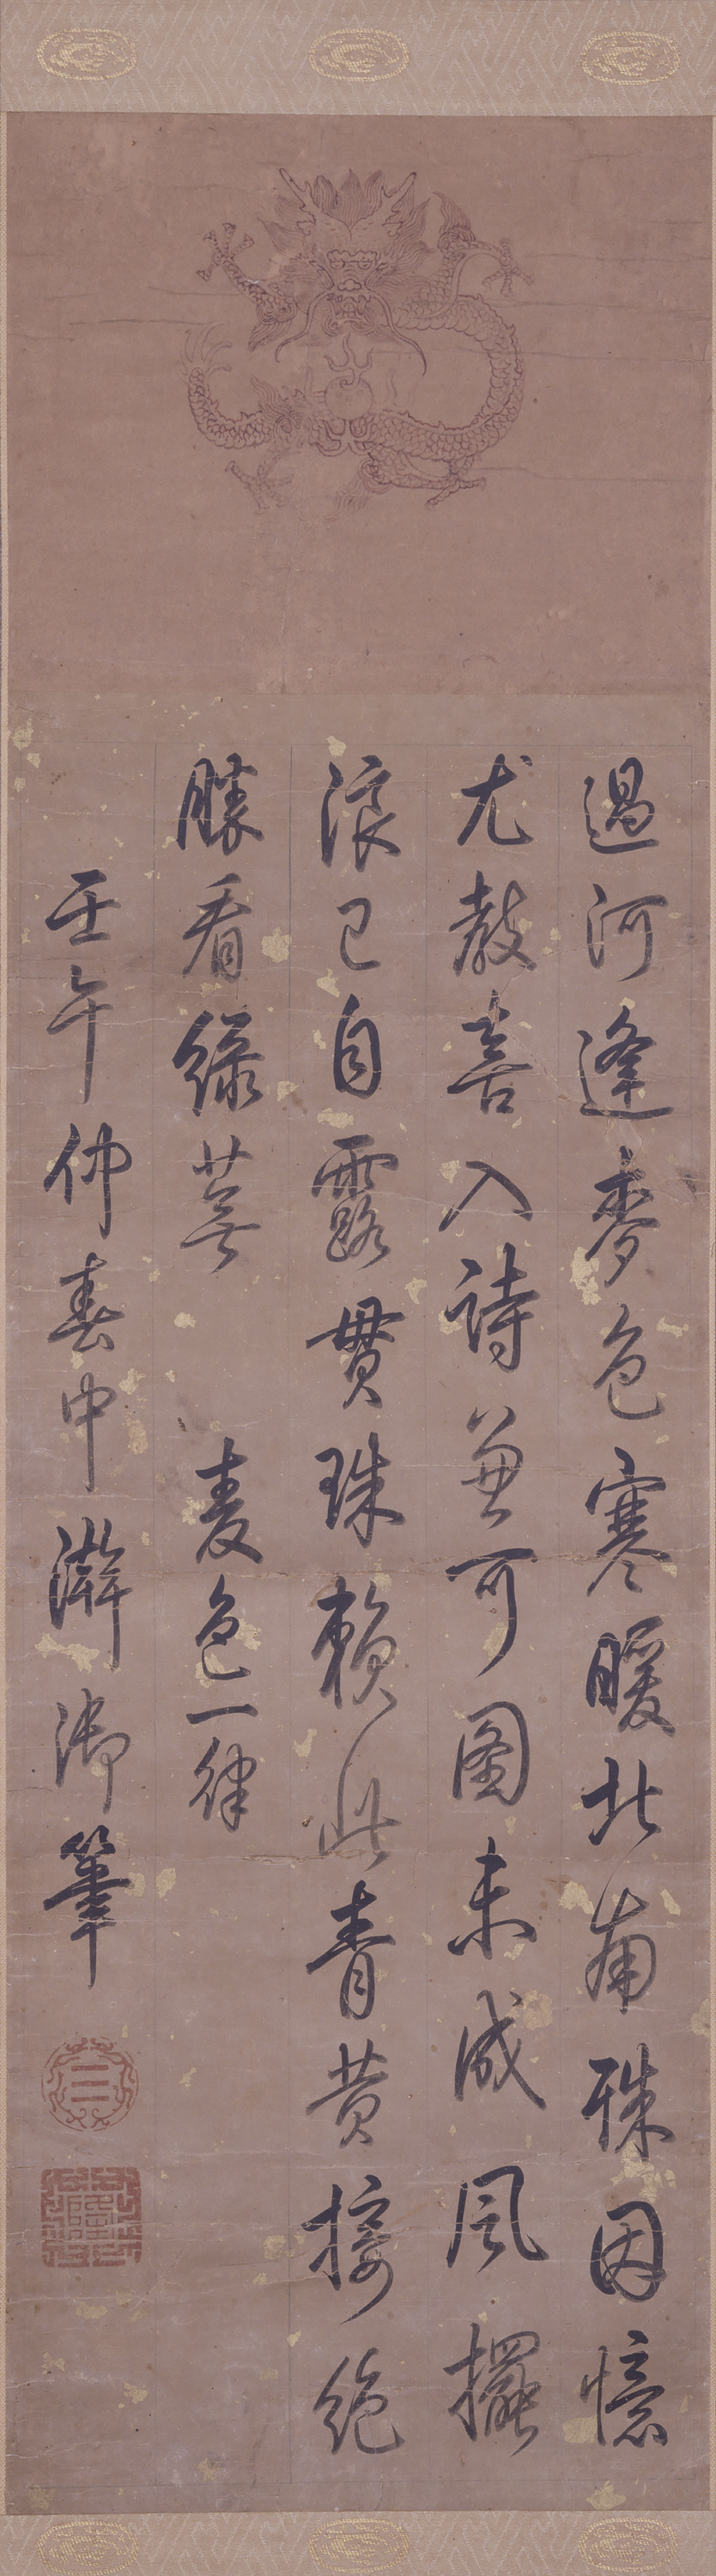 過河逢麥色寒暖北南殊因憶
尤教喜入詩兼可圖未成風擺
浪已自露貫珠賴此青黃接絕
勝看綠蕪　麥色一律
壬午仲春中澣御筆
☰
隆